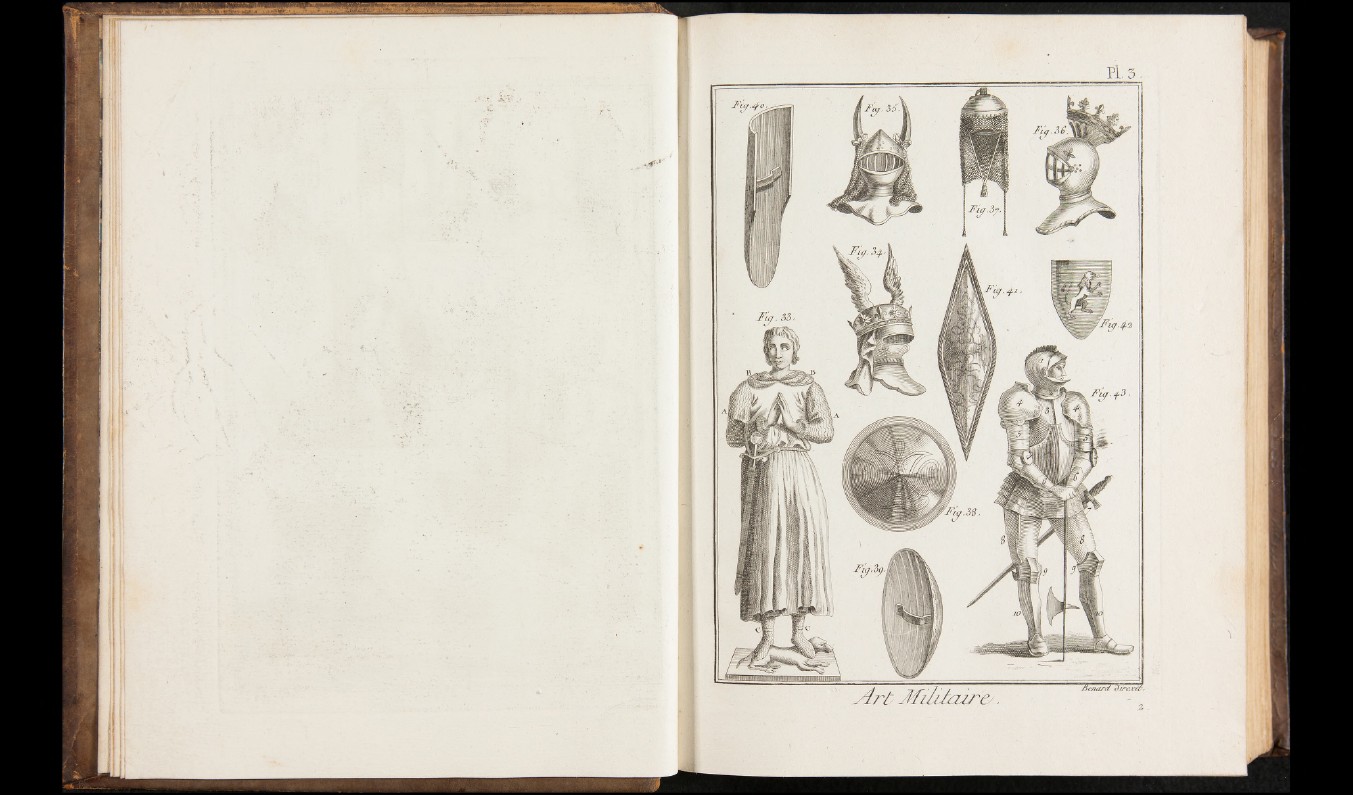 Pl. 3.
Fig. 40.
Fig. 35.
Fig. 36.
Fig. 37.
Fig. 34.
Fig. 41.
Fig. 42
Fig. 33.
B B
A A
C C
Fig. 43.
1
4 3 4
5
8 8
9 9
10 10
Fig. 38.
Fig. 39.
Art Militaire.
Benard direxit.
2